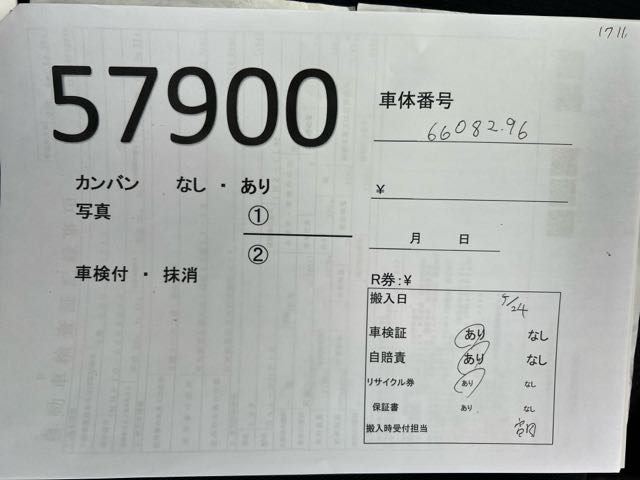 1711
57900
車体番号
6608296
カンバン なし ・ あり
¥
写真 ①
②
月 日
車検付 ・ 抹消
R券:¥
搬入日 5/24
車検証 あり なし
自賠責 あり なし
リサイクル券 あり なし
保証書 あり なし
搬入時受付担当